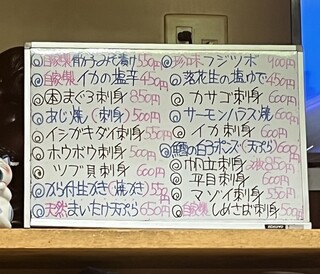 ◎自家製筋子みそ漬け550円
◎自家製イカの塩辛450円
◎本まぐろ刺身850円
◎あじ焼(刺身)500円
◎イシガキダイ刺身550円
◎ホウボウ刺身500円
◎ツブ貝刺身600円
◎から付生がき(焼がき)550
◎天然まいたけ天ぷら650円
◎珍味フジツボ400円
◎落花生の塩ゆで450円
◎カサゴ刺身600円
◎サーモンハラス焼600円
◎イカ刺身600円
◎鱈の白子ポンズ・(天ぷら)600円
◎帆立刺身600円
◎平目刺身600円
◎マゾイ刺身550円
◎自家製しめさば刺身500円